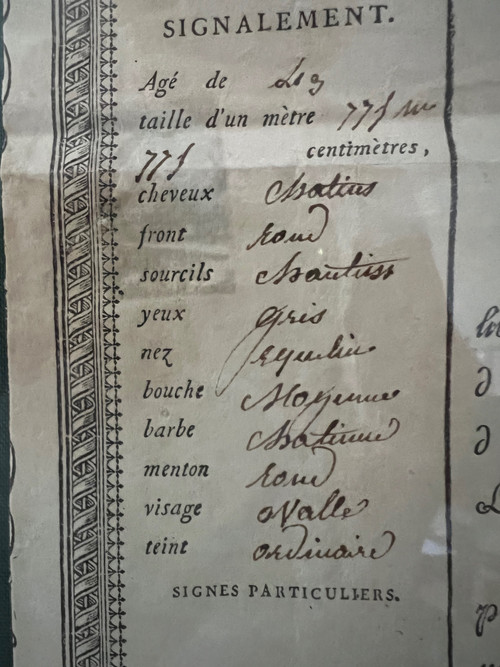 SIGNALEMENT.
Agé de
taille d'un mètre 775 m
775 centimètres,
cheveux Chatins
front rond
sourcils
yeux gris
nez
bouche Moyenne
barbe Chatinne
menton rond
visage ovalle
teint ordinaire
SIGNES PARTICULIERS.